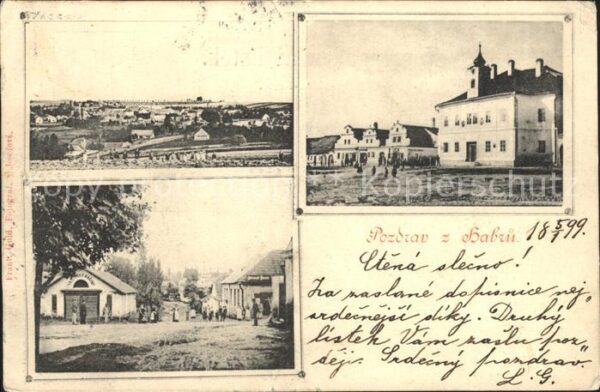 Pozdrav z Habrů. 18 5/7 99.
Ctěná slečno!
Za zaslané dopisnice nej„
srdečnejsi díky. Druhý
lístek Vám zašlu poz„
ději. Srdečný pozdrav.
L. G.